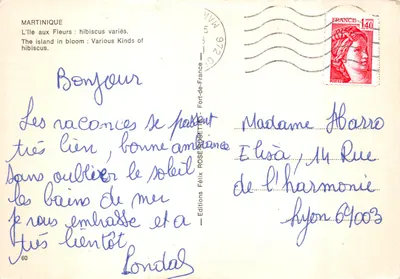 MARTINIQUE
L'Ile aux Fleurs : hibiscus variés.
The island in bloom : Various Kinds of
hibiscus.
Bonjour
Les vacances se passent
très bien, bonne ambiance
sans oublier le soleil
les bains de mer
je vous embrasse et a
très bientôt.
60
Editions Félix ROSE-ROSETTE - Fort-de-France
972
FRANCE
1,40
Madame
Elisa, 14 Rue
de l'harmonie
Lyon 69003